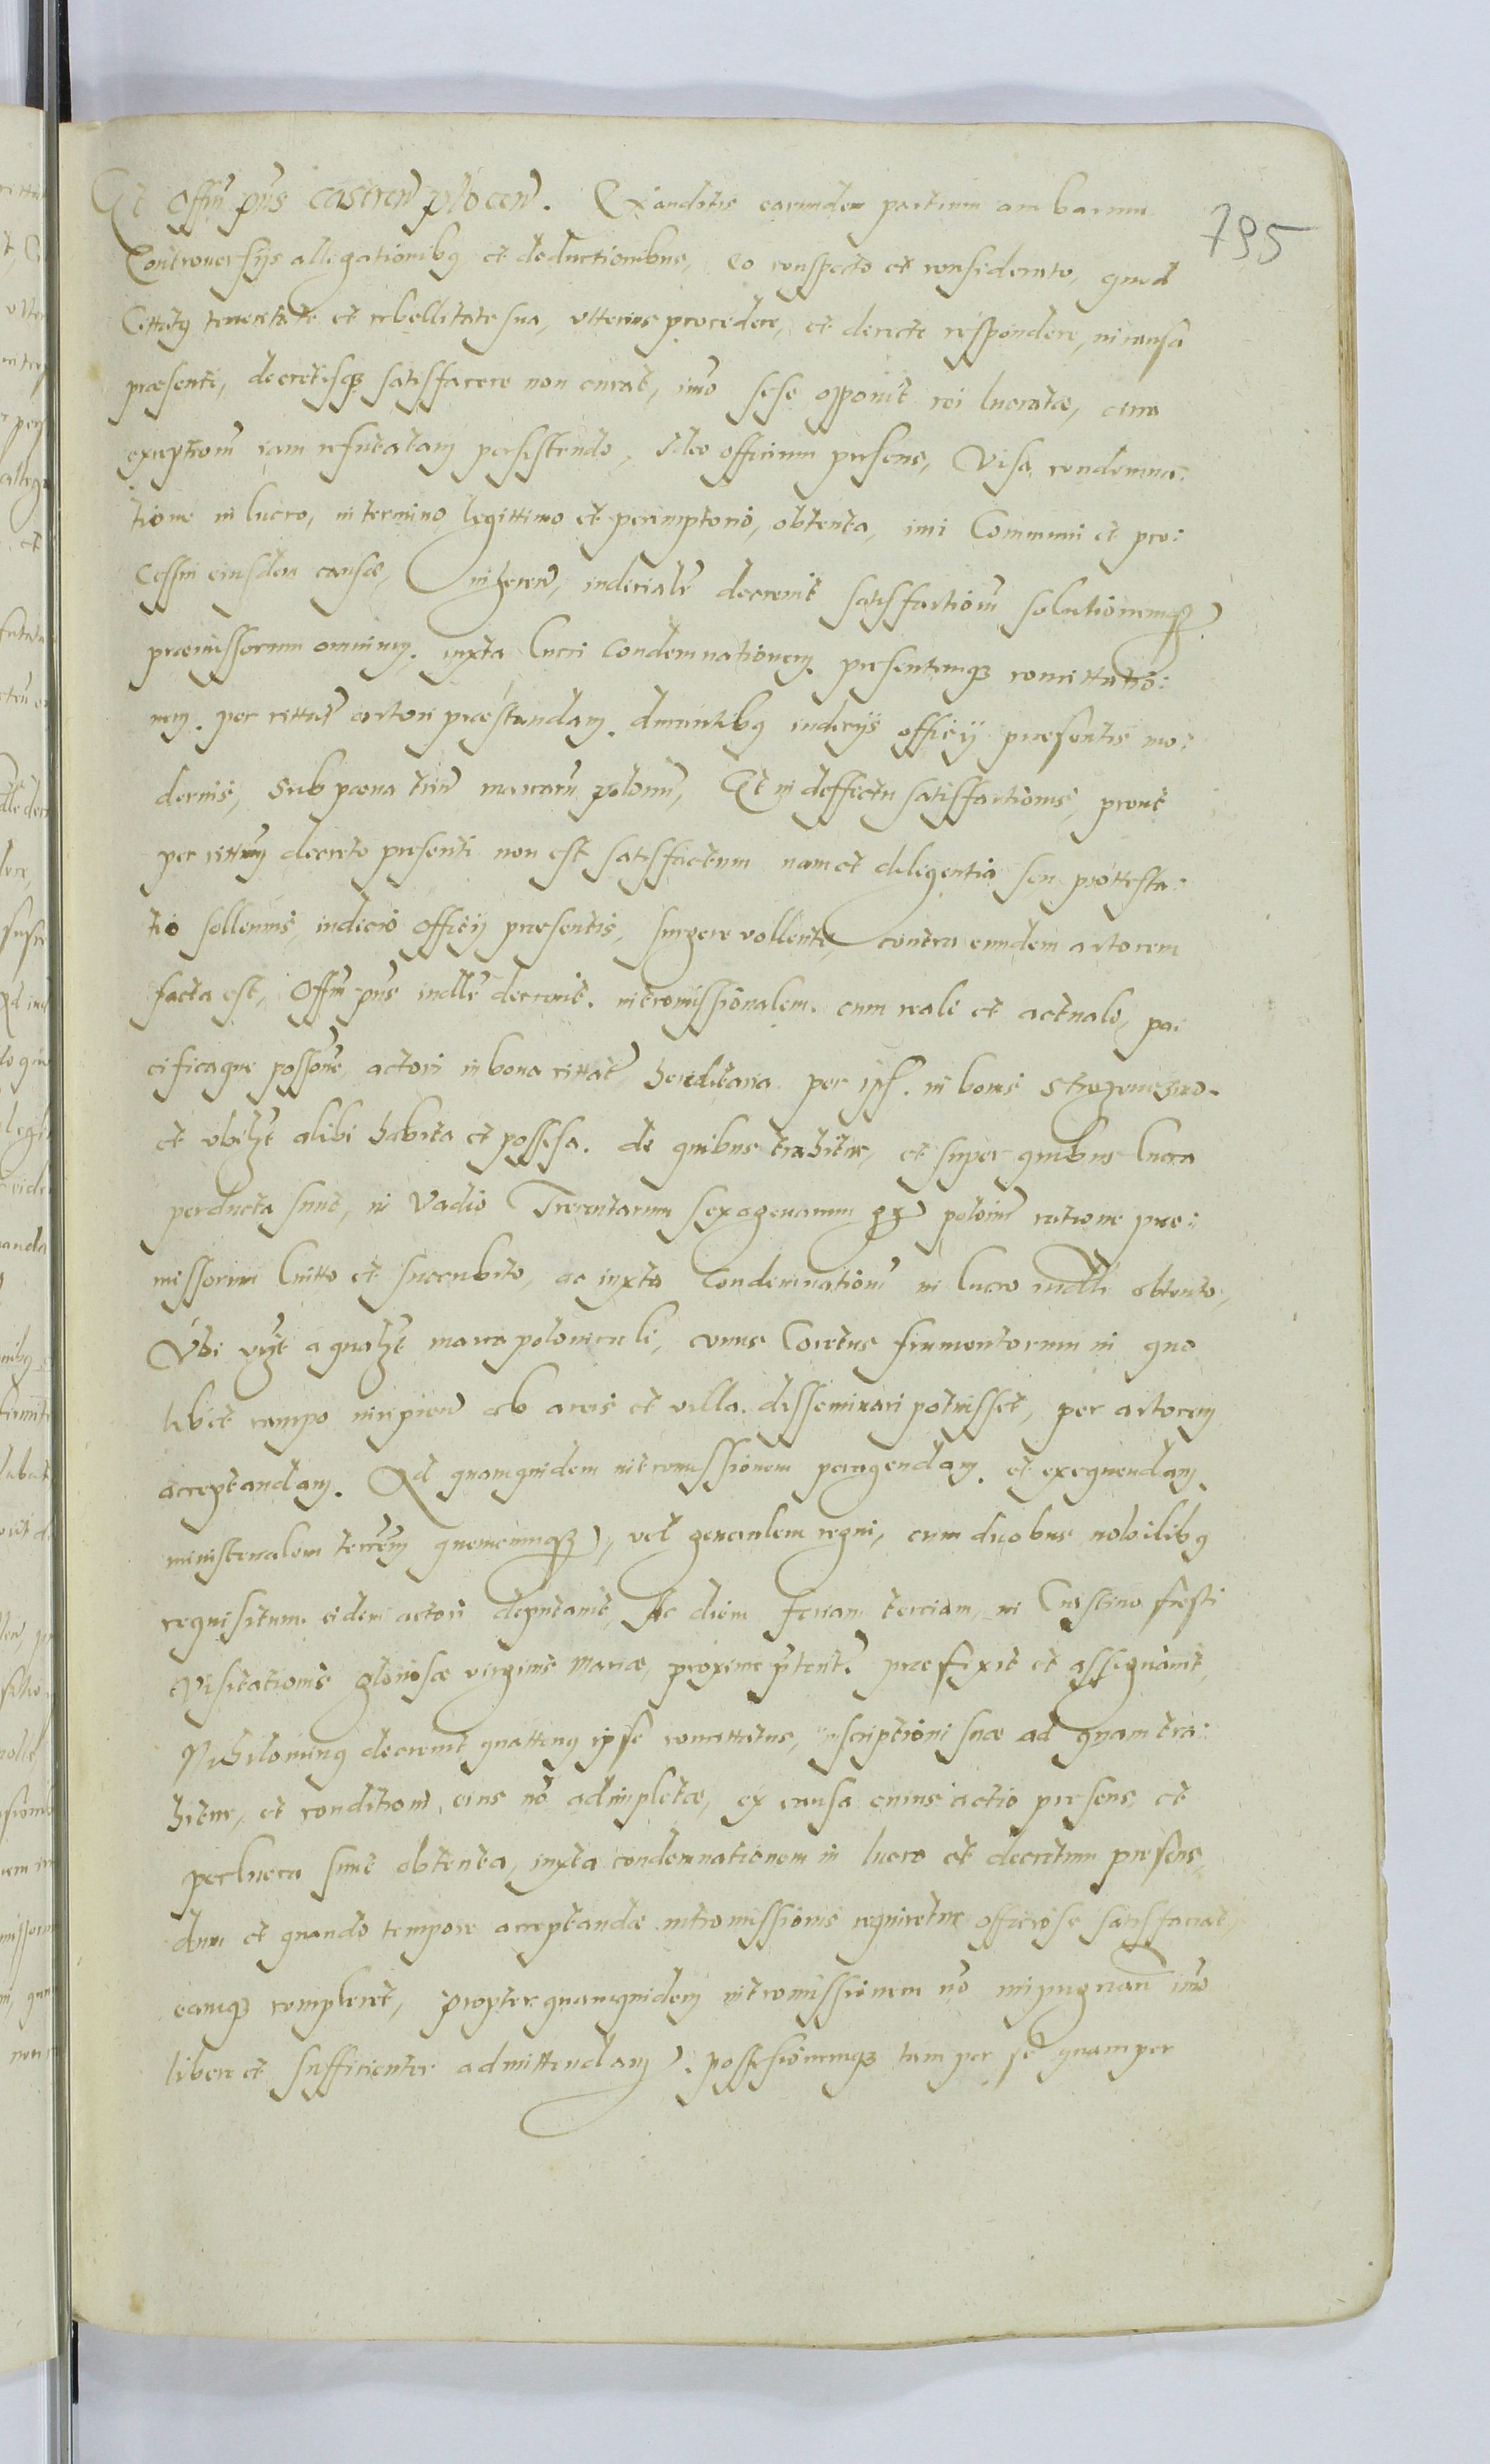 795
Et Offm pns castren plocen. Exauditis earundem partium ambarum
Controversijs allegationibq et deductionibus, eo conspecto et considerato, quod
Cittatq temeritate et rebellitate sua, ulterius procedere, et directe respondere, in causa
præsenti, decretisqz satisfacere non curat, imo sese opponit rei lucratæ, circa
exceptionem iam refutatam persistendo, ideo officium presens, Visa condemna:
tione in lucro, in termino legittimo et peremptorio, obtenta, iuri Communi et pro:
cessui eiusdem causæ, inheren, iudicialr decrevit satisfactionem solutionemqz
præmissorum omnium, iuxta lucri condemnationem presentemqz concittatio:
nem, per cittatum actori præstandam, durantibq iudicijs officij præsentis mo:
dernis, sub pæna trium marcaru polonm, Et in deffectu satisfactionis, prout
per cittatum decreto presenti non est satisfactum nam et diligentia seu prottesta:
tio sollennis, iudicio officij præsentis, surgere vollente, contra eundem actorem
facta est, Offm pns iudlr decrevit, intromissionalem, cum reali et actuali, pa:
cificaque possione, actori in bona cittati hereditaria per ips. in bonis
et ubilzt alibi habita et possesa, de quibus trahitur, et super quibus lucra
perducta sunt, in Vadio Trecentarum sexagenarum gr polonm ratione præ:
missorum luitto et succubito, ac iuxta condemnationem in lucro iudlr obtento,
Ubi vizt a qualzt marca polonicali, corus frumentorum in quo
libet campo incipien ab areis et villa disseminari potuisset, per actorem
acceptandam. Ad quamquidem intromissionem peragendam, et exequendam,
ministerialem terrem quemcumqz, vel generalem regni, cum duobus nobilibq
requisitum eidem actori deputavit, Ac diem feriam terciam, in Crastino festi
Visitationis gloriosæ virginis Mariæ, proxime præfixit et assignavit,
Nihilominq decrevit quattenq ipse concittatus, inscriptioni suæ ad quam tra:
hitur, et conditioni eius no adimpletæ, ex causa cuius actio presens et
perlucra sunt obtenta, iuxta condemnationem in lucro et decretum presens,
dum et quando tempore acceptandæ intromissionis requiretur officiose satisfaciat,
eamqz compleret, propter quamquidem intromissionem no impugnan imo
libere et sufficienter admittendam, possesionemqz tam per se quam per